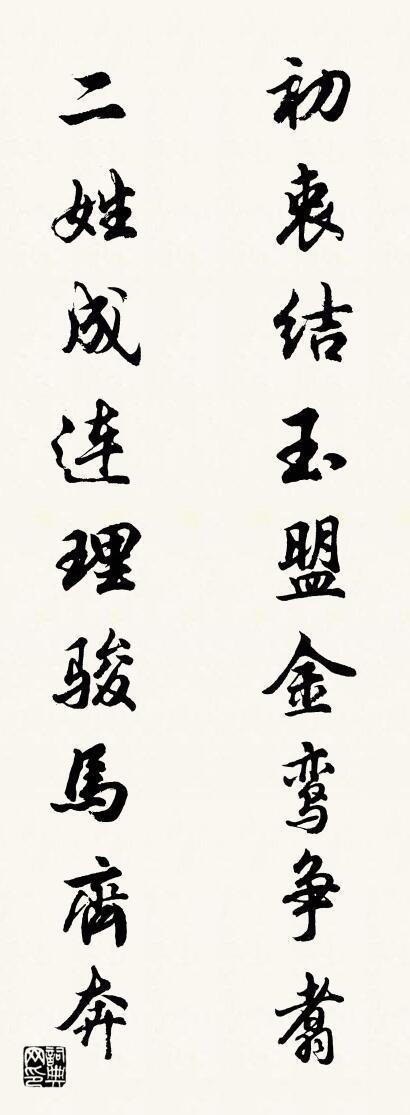 初衷结玉盟金鸾争翥
二姓成连理骏馬齊奔
詞典网印